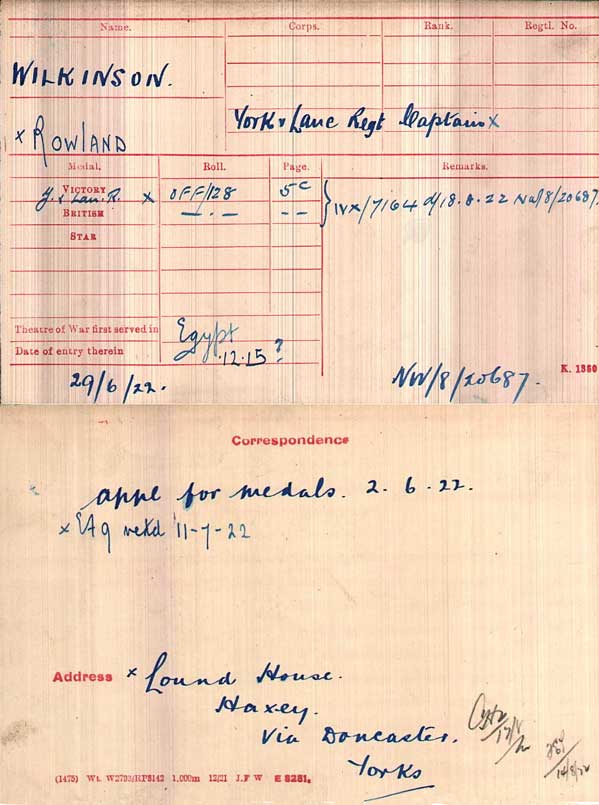 Name. Corps. Rank. Regtl. No.
WILKINSON.
York & Lanc Regt Captain x
x ROWLAND
Medal. Roll. Page. Remarks.
VICTORY
Y. & Lan. R. x OFF/128 5c
BRITISH — . — - -
IVX/7164 d/18.8.22 NW/8/20687.
STAR
Theatre of War first served in Egypt
Date of entry therein .12.15 ?
29/6/22. NW/8/20687. K. 1380
Correspondence
appl for medals. 2.6.22.
x EF9 retd 11-7-22
Address x Lound House.
Haxey.
Via Doncaster.
Yorks
14/8/22
(1475) Wt. W2793/RP5142 1,000m 12/21 J.F W E 8281.